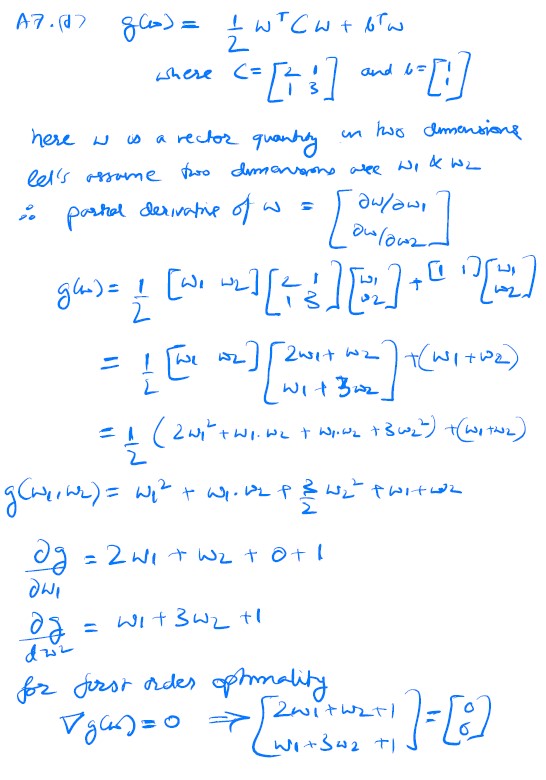 A7.(d) g(w) = 1/2 wᵀ C w + bᵀw
where C = [2 1; 1 3] and b = [1; 1]
here w is a vector quantity in two dimensions
let's assume two dimensions are w1 & w2
∴ partial derivative of w = [∂w/∂w1; ∂w/∂w2]
g(w) = 1/2 [w1 w2] [2 1; 1 3] [w1; w2] + [1 1] [w1; w2]
= 1/2 [w1 w2] [2w1 + w2; w1 + 3w2] + (w1 + w2)
= 1/2 (2w1² + w1.w2 + w1.w2 + 3w2²) + (w1+w2)
g(w1,w2) = w1² + w1.w2 + 3/2 w2² + w1 + w2
∂g/∂w1 = 2w1 + w2 + 0 + 1
∂g/dw2 = w1 + 3w2 + 1
for first order optimality
∇g(w) = 0 ⇒ [2w1 + w2 + 1; w1 + 3w2 + 1] = [0; 0]